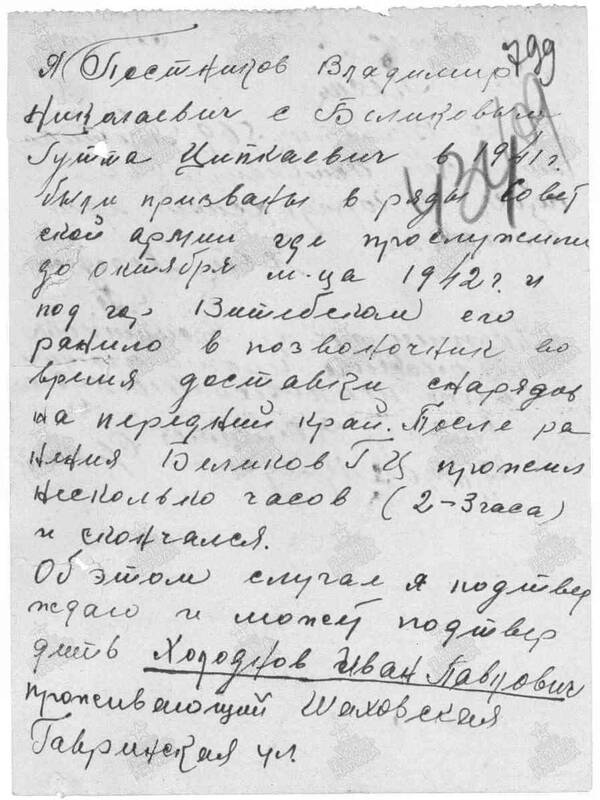 Я Постников Владимир 799
Николаевич с Беликовым
Гутта Ципкаевич в 1941 г.
были призваны в ряды Совет
ской армии где прослужили
до октября м-ца 1942 г. и
под гор. Витебском его
ранило в позвоночник во
время доставки снарядов
на передний край. После ра
нения Беликов Г Ц прожил
несколько часов (2-3 часа)
и скончался.
Об этом случае я подтвер
ждаю и может подтвер
дить Холоднов Иван Павлович
проживающий Шаховская
Гавринская ул.